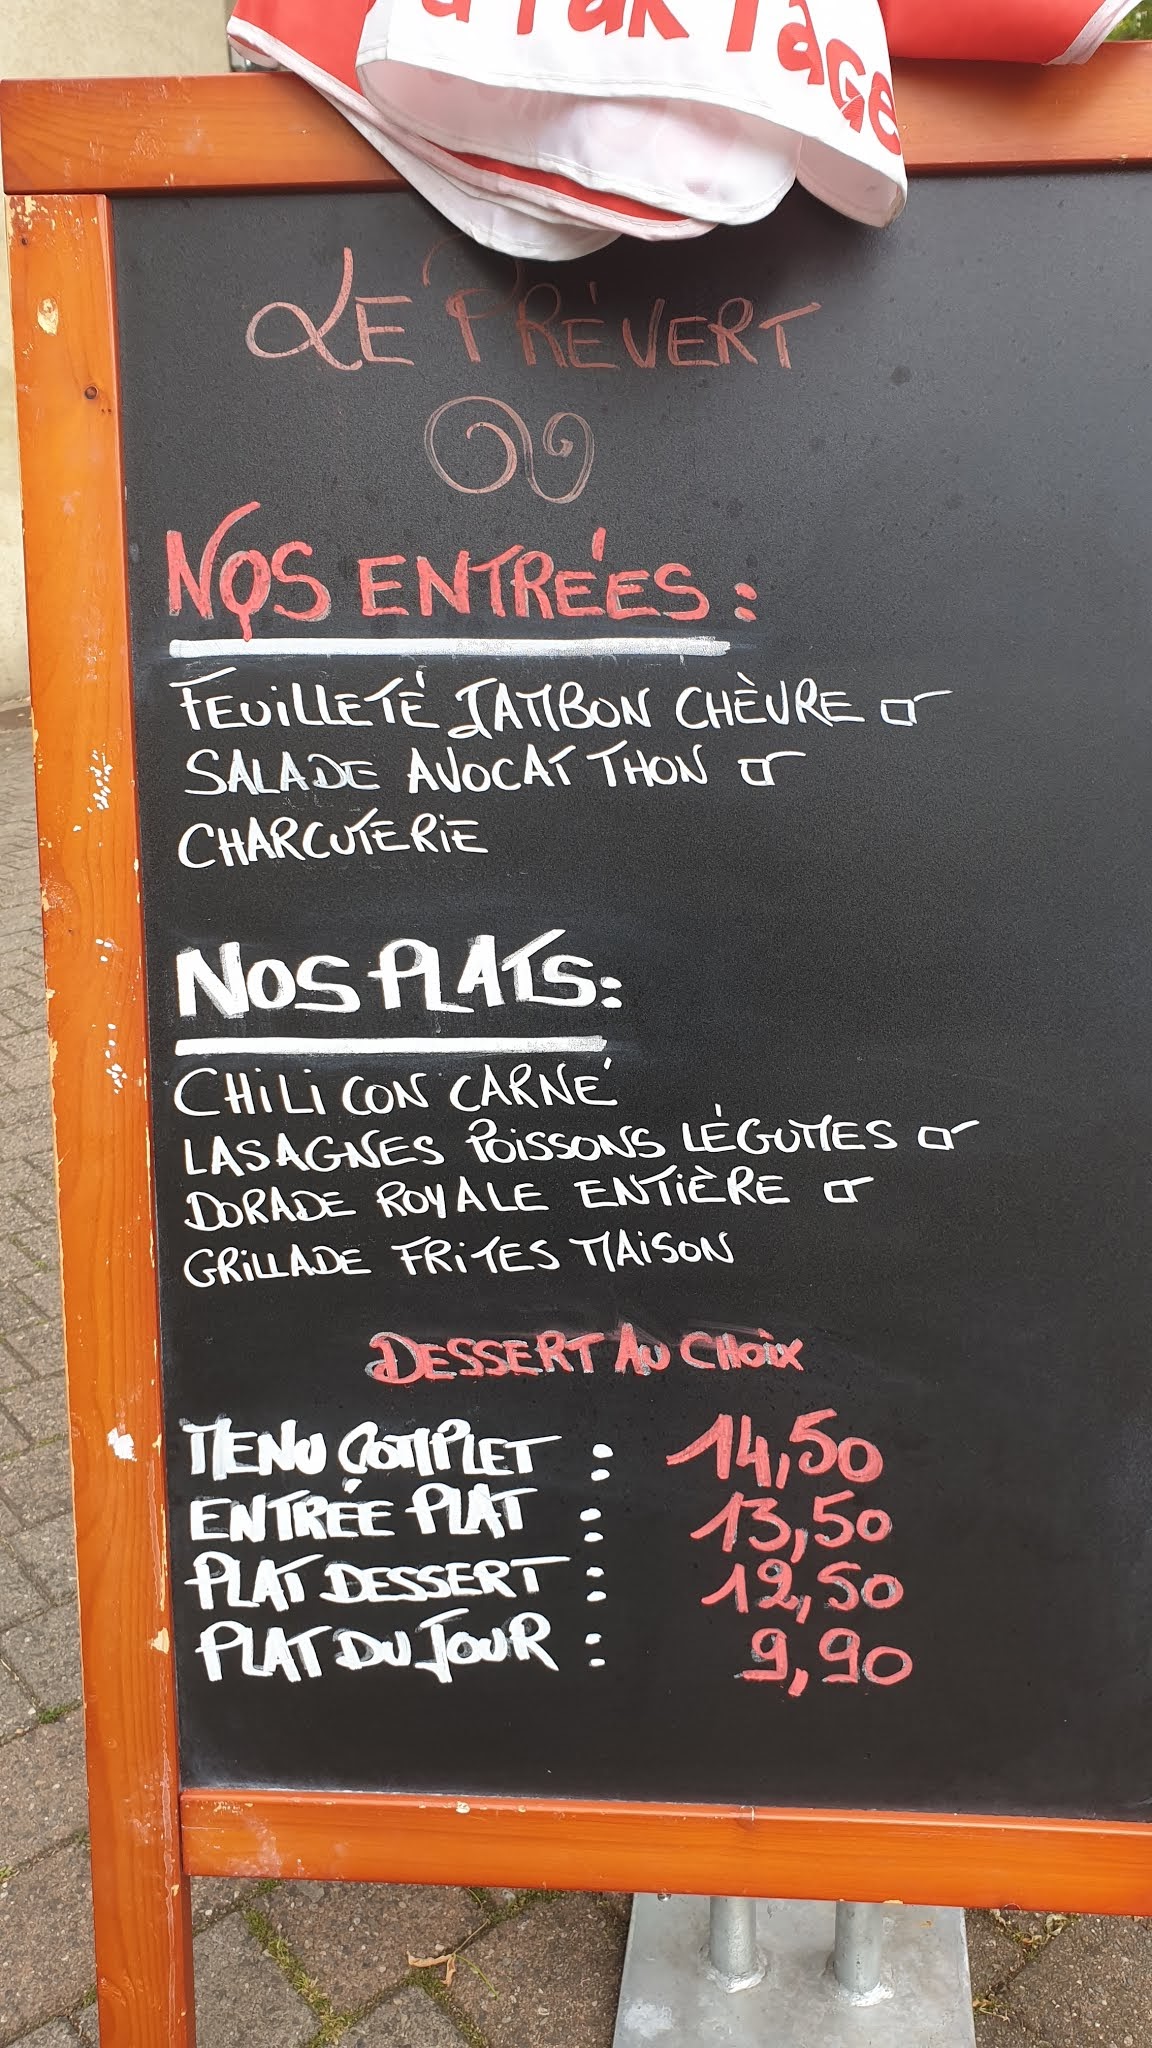 Partage
LE PRÉVERT
NOS ENTRÉES :
FEUILLETÉ JAMBON CHÈVRE
SALADE AVOCAT THON
CHARCUTERIE
NOS PLATS :
CHILI CON CARNÉ
LASAGNES POISSONS LÉGUMES
DORADE ROYALE ENTIÈRE
GRILLADE FRITES MAISON
DESSERT AU CHOIX
MENU COMPLET : 14,50
ENTRÉE PLAT : 13,50
PLAT DESSERT : 12,50
PLAT DU JOUR : 9,90